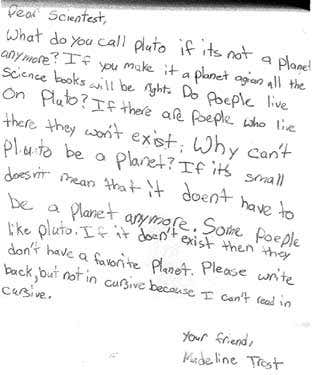 Dear Scientest,
What do you call Pluto if its not a planet
anymore? If you make it a planet agian all the
science books will be right. Do poeple live
on Pluto? If there are poeple who live
there they won't exist. Why can't
Pluto be a planet? If it's small
doesn't mean that it doent have to
be a planet anymore. Some poeple
like pluto. If it doen't exist then they
don't have a favorite planet. Please write
back, but not in cursive because I can't read in
cursive.
Your friend,
Madeline Trost